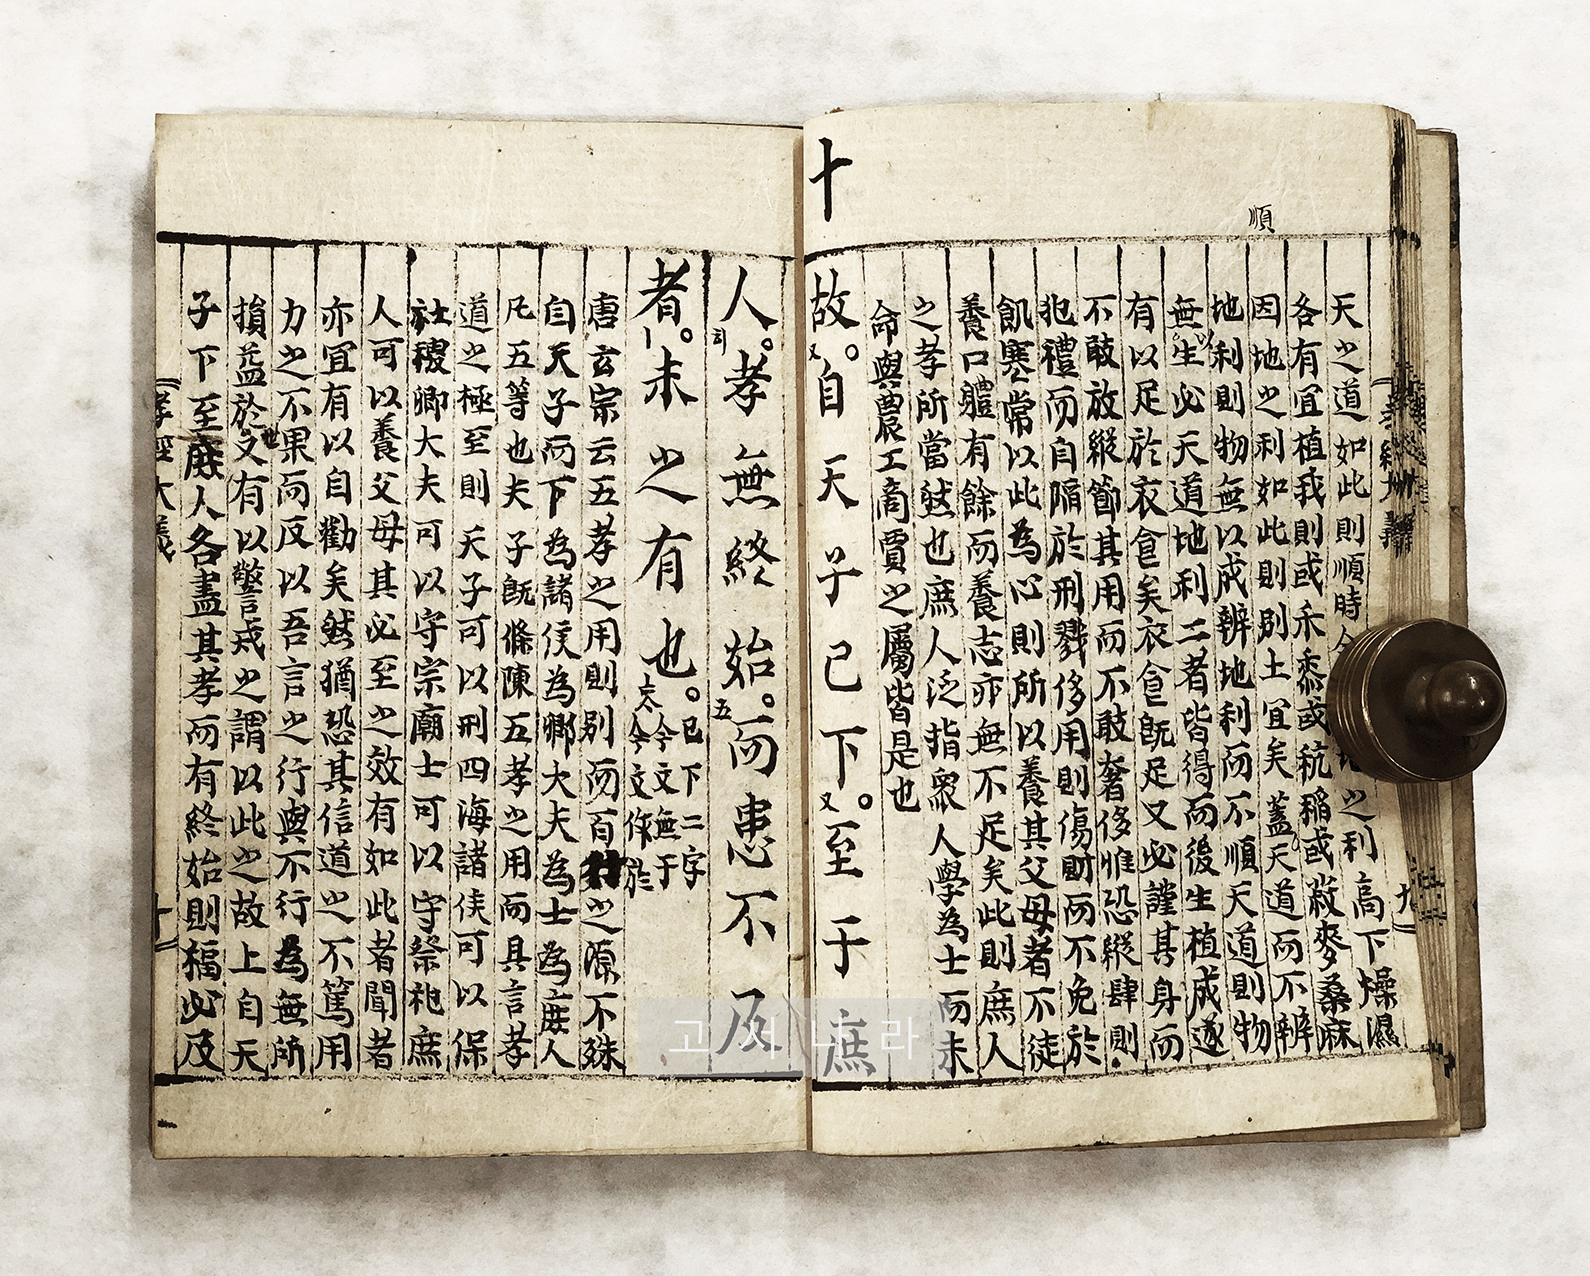 十
順
天之道如此則順時之利高下燥濕
各有宜植我則或禾黍或秔稻或菽麥桑麻
因地之利如此則別土宜矣蓋天道而不辨
地利則物無以成辨地利而不順天道則物
無以生必天道地利二者皆得而後生植成遂
有以足於衣食矣衣食旣足又必謹其身而
不敢放縱節其用而不敢奢侈惟恐縱肆則
犯禮而自陷於刑戮侈用則傷財而不免於
飢寒常以此為心則所以養其父母者不徒
養口體有餘而養志亦無不足矣此則庶人
之孝所當然也庶人泛指衆人學為士而未
命與農工商賈之屬皆是也
故自天子已下至于庶
人孝無終始而患不及
者未之有也
已下二字
今文無于
今文作於
唐玄宗云五孝之用則別而百之源不殊
自天子而下為諸侯為卿大夫為士為庶人
凡五等也夫子旣條陳五孝之用而具言孝
道之極至則天子可以刑四海諸侯可以保
社稷卿大夫可以守宗廟士可以守祭祀庶
人可以養父母其必至之效有如此者聞者
亦宜有以自勸矣然猶恐其信道之不篤用
力之不果而反以吾言之行與不行為無所
損益於也又有以警戒之謂以此之故上自天
子下至庶人各盡其孝而有終始則福必及
孝經大義
十
고서나라